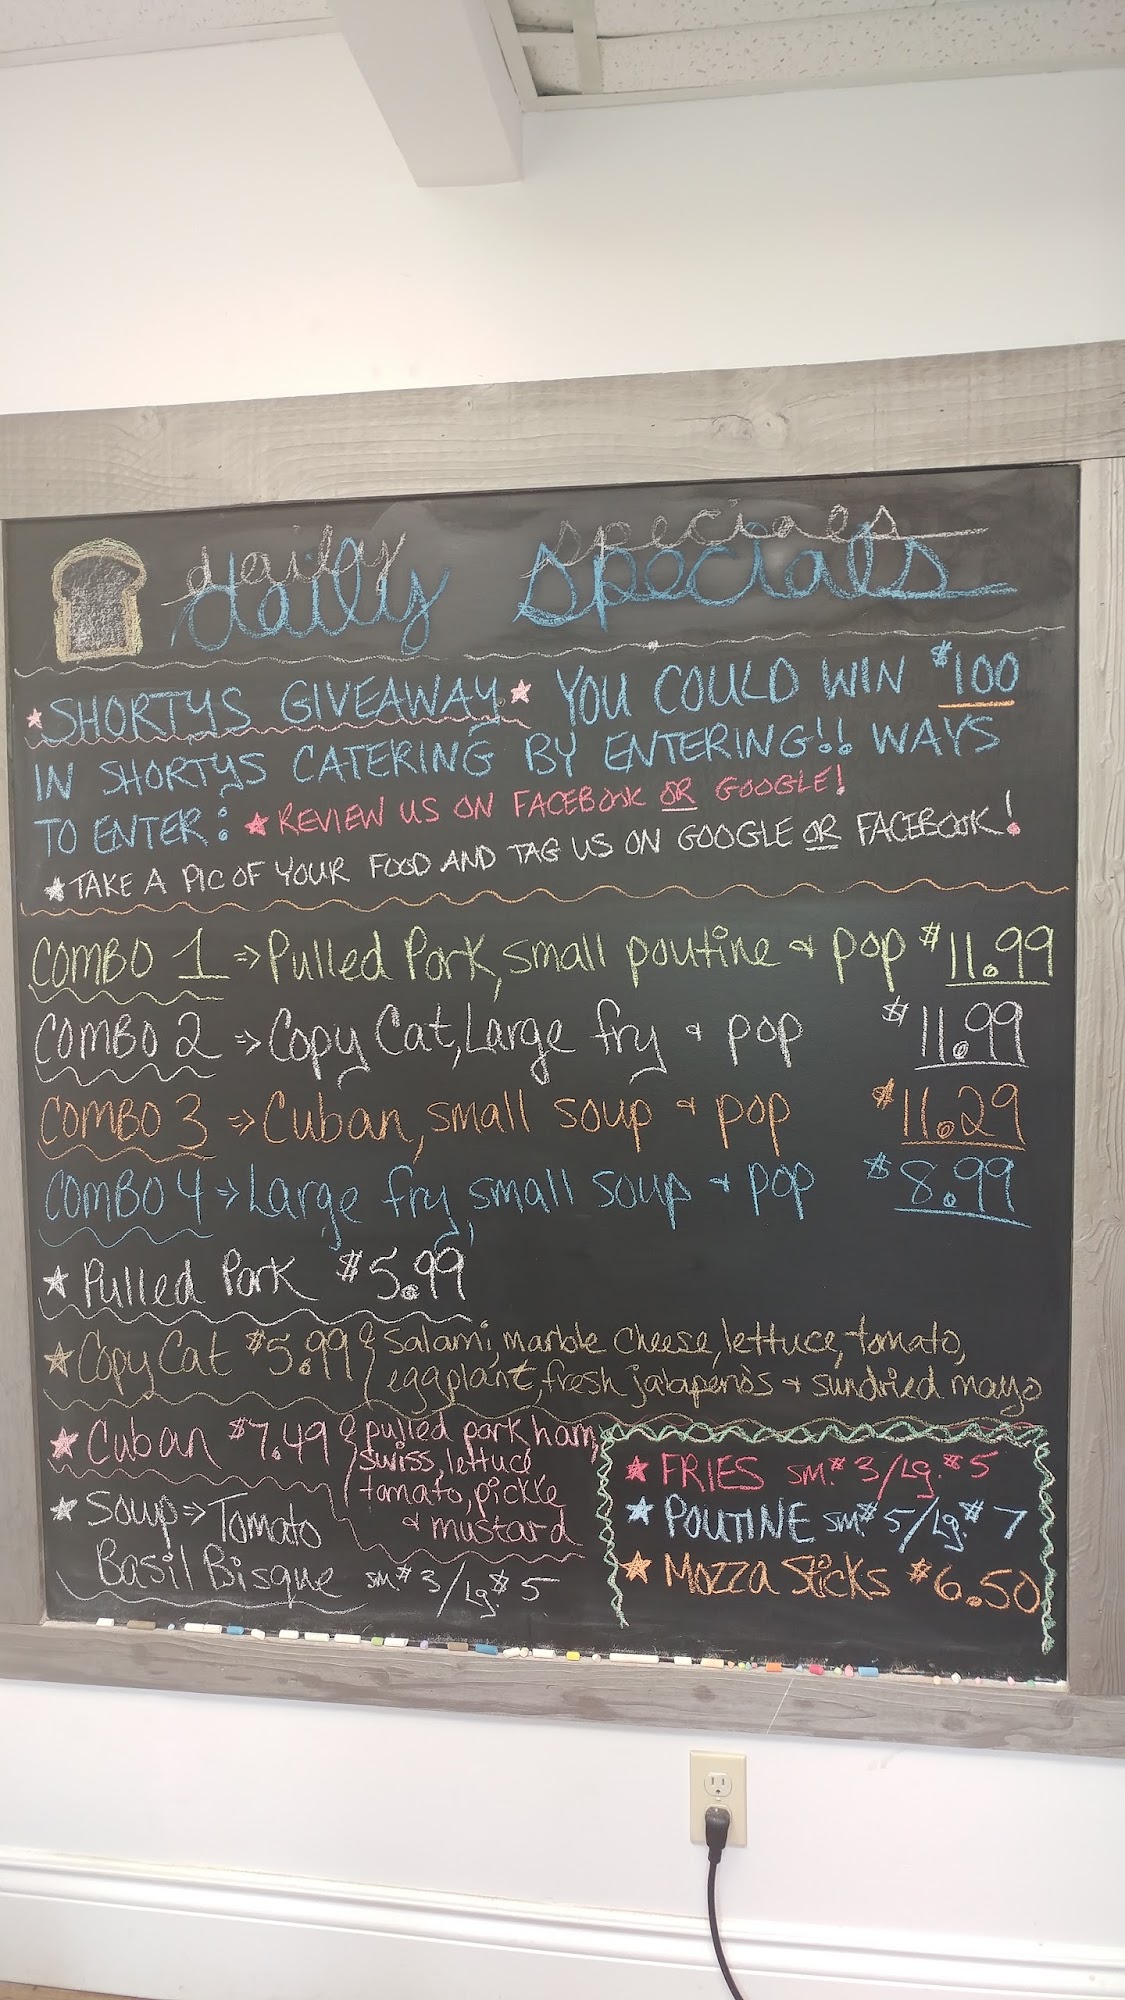 daily specials
SHORTYS GIVEAWAY YOU COULD WIN $100
IN SHORTYS CATERING BY ENTERING!! WAYS
TO ENTER: ★ REVIEW US ON FACEBOOK OR GOOGLE!
★ TAKE A PIC OF YOUR FOOD AND TAG US ON GOOGLE OR FACEBOOK!
COMBO 1 => Pulled Pork, small poutine & pop $11.99
COMBO 2 => Copy Cat, Large fry & pop $11.99
COMBO 3 => Cuban, small soup & pop $11.29
COMBO 4 => Large fry, small soup & pop $8.99
★ Pulled Pork $5.99
★ Copy Cat $5.99 { Salami, marble cheese, lettuce, tomato,
eggplant, fresh jalapeno's & sundried mayo
★ Cuban $7.49 { pulled pork ham,
swiss, lettuce
tomato, pickle
& mustard
★ Soup => Tomato
Basil Bisque sm.$3/Lg.$5
★ FRIES sm.$3/Lg.$5
★ POUTINE sm$5/Lg.$7
★ Mozza Sticks $6.50